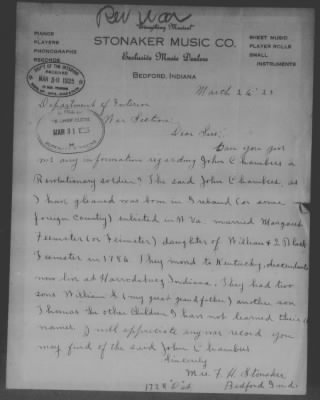 Rev War
"Everything Musical"
PIANOS
PLAYERS
PHONOGRAPHS
RECORDS
STONAKER MUSIC CO.
Exclusive Music Dealers
BEDFORD, INDIANA
SHEET MUSIC
PLAYER ROLLS
SMALL
INSTRUMENTS
RECEIVED
MAR
March 26' 25
Department of Interior
War Section.
MAR 31
Dear Sir:
Can you give
me any information regarding John Chambers a
Revolutionary soldier? The said John Chambers, as
I have gleaned was born in Ireland (or some
foreign country) enlisted in Va. married Margaret
Feemster (or Feimster) daughter of William &
Feemster in 1786. They moved to Kentucky, descendants
now live at Harrodsburg Indiana. They had two
sons William K (my great grandfather) another son
Thomas the other children I have not learned their
names. I will appreciate any war record you
may find of the said John Chambers
Sincerely
Mrs. F. H. Stonaker
1728 "O" St.
Bedford Ind.